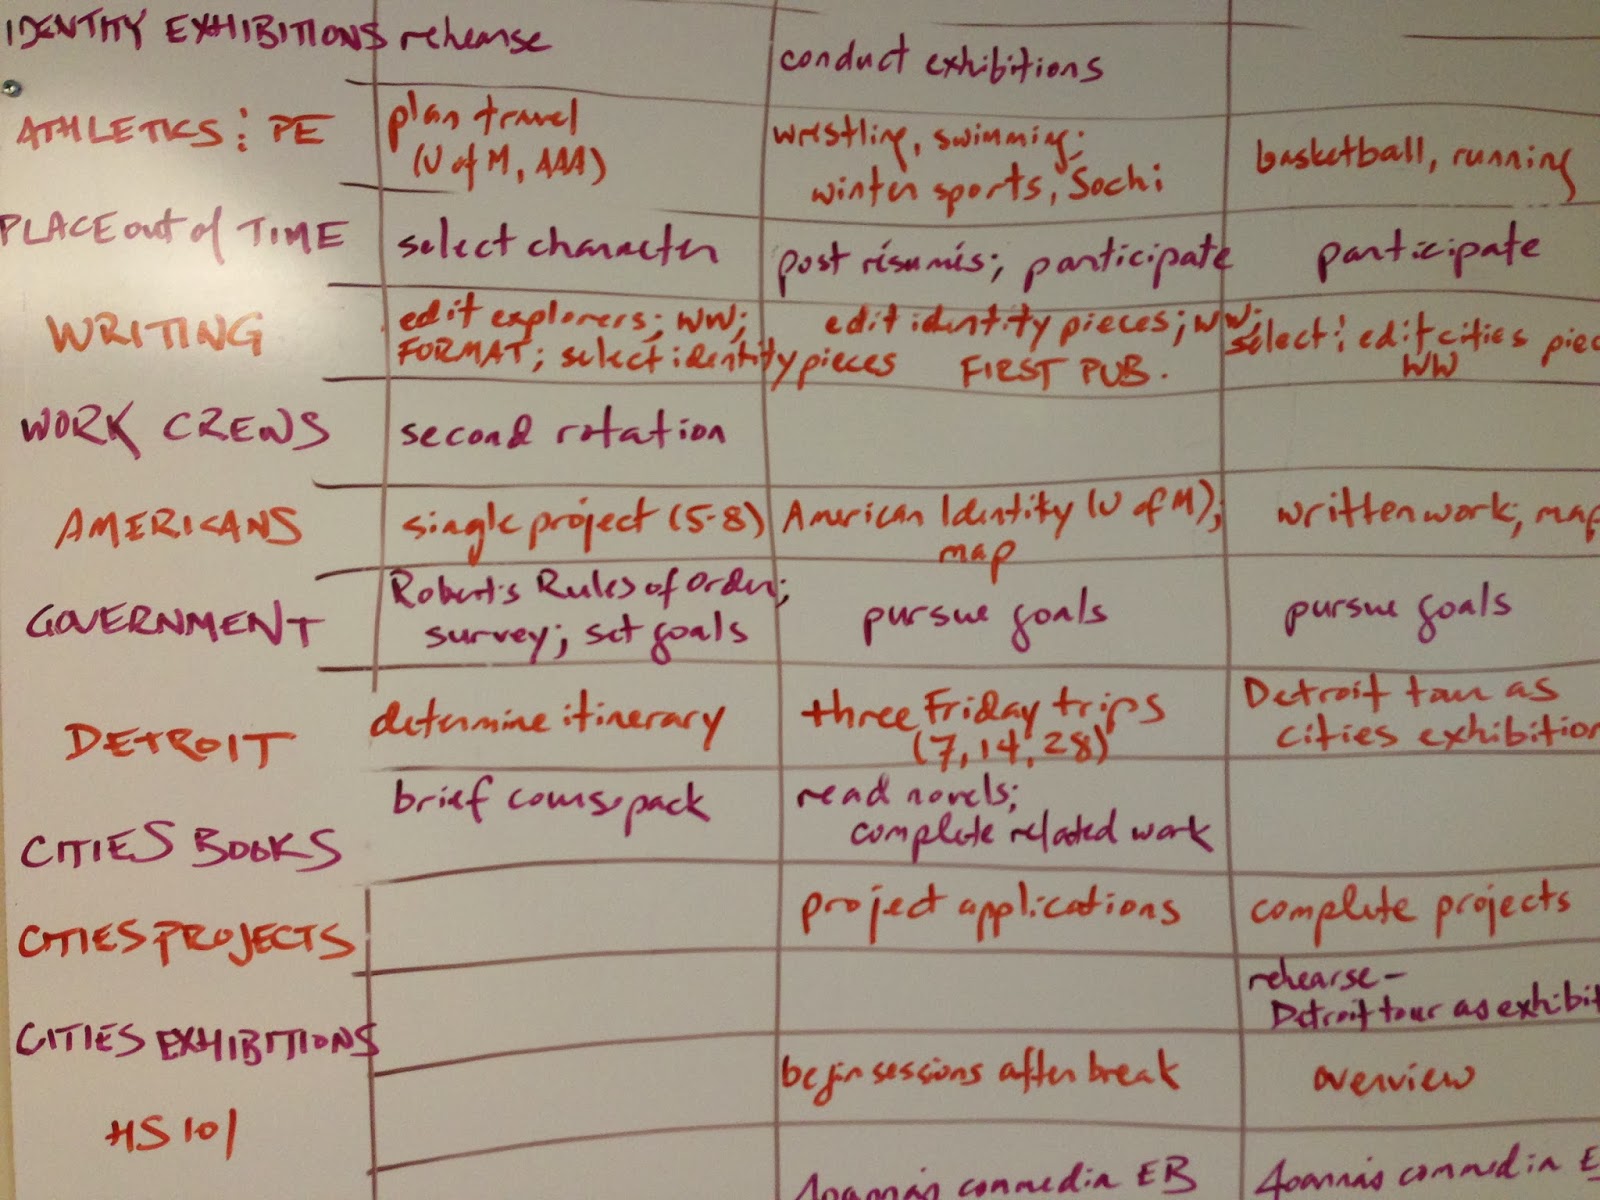 IDENTITY EXHIBITIONS rehearse
conduct exhibitions
ATHLETICS : PE
plan travel
(U of M, AAA)
wrestling, swimming;
winter sports, Sochi
basketball, running
PLACE out of TIME
select character
post résumés; participate
participate
WRITING
edit explorers; WW;
FORMAT; select identity pieces
edit identity pieces; WW;
FIRST PUB.
select : edit cities piec
WW
WORK CREWS
second rotation
AMERICANS
single project (5-8)
American Identity (U of M);
map
written work; map
GOVERNMENT
Robert's Rules of Order;
survey; set goals
pursue goals
pursue goals
DETROIT
determine itinerary
three Friday trips
(7, 14, 28)
Detroit tour as
cities exhibition
CITIES BOOKS
brief coursepack
read novels;
complete related work
CITIES PROJECTS
project applications
complete projects
CITIES EXHIBITIONS
rehearse -
Detroit tour as exhibit
HS 101
begin sessions after break
overview
Joanna's commedia EB
Joanna's commedia E